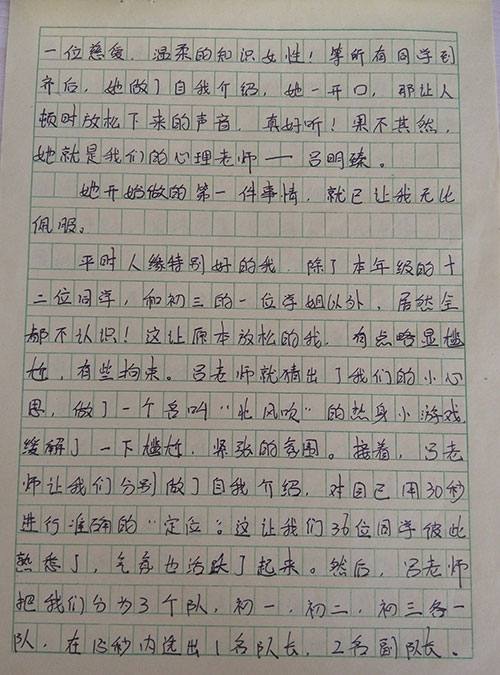 一位慈爱、温柔的知识女性！等所有同学到
齐后，她做了自我介绍，她一开口，那让人
顿时放松下来的声音，真好听！果不其然，
她就是我们的心理老师——吕明臻。
她开始做的第一件事情，就已让我无比
佩服。
平时人缘特别好的我，除了本年级的十
二位同学，和初三的一位学姐以外，居然全
都不认识！这让原本放松的我，有点略显尴
尬，有些拘束。吕老师就猜出了我们的小心
思，做了一个名叫“北风吹”的热身小游戏，
缓解了一下尴尬，紧张的氛围。接着，吕老
师让我们分别做了自我介绍，对自己用30秒
进行准确的“定位”。这让我们36位同学彼此
熟悉了，气氛也活跃了起来。然后，吕老师
把我们分为3个队，初一、初二、初三各一
队，在15秒内选出1名队长，2名副队长。